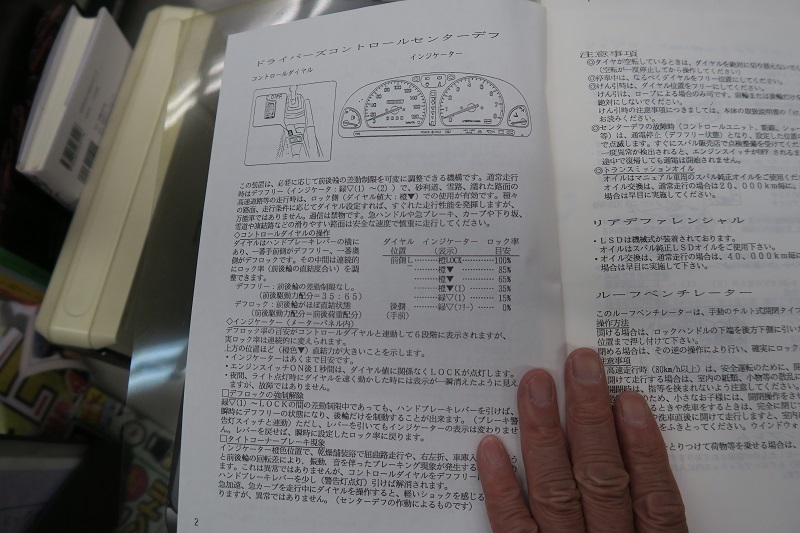 ドライバーズコントロールセンターデフ
コントロールダイヤル
インジケーター
この装置は、必要に応じて前後輪の差動制限を可変に調整できる機構です。通常走行
時はデフフリー(インジケータ:緑▽(1)～(2))で、砂利道、雪路、濡れた路面の
高速道路等の走行時は、ロック側(ダイヤル値大:橙▼)での使用が有効です。種々
の路面、走行条件に応じてダイヤル設定すれば、すぐれた走行性能を発揮しますが、
万能車ではありません。過信は禁物です。急ハンドルや急ブレーキ、カーブや下り坂、
雪道や凍結路などの滑りやすい路面は安全な速度で慎重に走行してください。
◇コントロールダイヤルの操作
ダイヤルはハンドブレーキレバーの横に
あり、一番手前側がデフフリー、一番奥
側がデフロックです。その中間は連続的
にロック率(前後輪の直結度合い)を調
整できます。
デフフリー:前後輪の差動制限なし。
(前後輪駆動力配分=35:65)
デフロック:前後輪がほぼ直結状態
(前後輪駆動力配分=前後荷重配分)
ダイヤル インジケーター ロック率
位置 (表示) 目安
前側L 橙LOCK 100%
橙▼ 85%
橙▼ 65%
橙▼(1) 35%
緑▽(1) 15%
後側 緑▽(フリー) 0%
(手前)
◇インジケータ(メーターパネル内)
デフロック率の目安がコントロールダイヤルと連動して6段階に表示されますが、
実ロック率は連続的に変えられます。
上方の位置ほど(橙色▼)直結力が大きいことを示します。
・インジケーターはあくまで目安です。
・エンジンスイッチON後1秒間は、ダイヤル値に関係なくLOCKが点灯します。
・夜間、ライト点灯時にダイヤルを速く動かした時には表示が一瞬消えたように見え
ますが、故障ではありません。
□デフロックの強制解除
緑▽(1)～LOCKの間の差動制限中であっても、ハンドブレーキレバーを引けば、
瞬時にデフフリーの状態になり、後輪だけを制動することが出来ます。(ブレーキ警
告灯スイッチと連動)ただし、レバーを引いてもインジケーターの表示は変わりませ
ん。レバーを戻せば、瞬時に設定したロック率に戻ります。
□タイトコーナーブレーキ現象
インジケーター橙色位置で、乾燥舗装路で低曲走行や、右左折、車庫入
と前後輪の回転差により、振動、音を伴ったブレーキング現象が発生する
ます。これは異常ではありませんが、コントロールダイヤルをデフフリー
ハンドブレーキレバーを少し(警告灯点灯)引けば解消されます。
急加速、急カーブを走行中にダイヤルを操作すると、軽いショックを感じる
りますが、異常ではありません。(センターデフの作動によるものです)
2
注意事項
◎タイヤが空転しているときは、ダイヤルを絶対に切り替えないで
(空転が一度停止してから操作してください)
◎停車中は、なるべくダイヤルをフリー位置にしてください。
◎けん引時は、ダイヤル位置をフリーにしてください。
けん引は、ロープによる場合のみ可です。前輪または後輪だけを
絶対にしないでください。
けん引時の注意事項につきましては、本体の取扱説明書の「
お読みください。
◎センターデフの故障時(コントロールユニット、電源、ショー
等)は、通電停止(デフフリー状態)となり、設定した位置
で点滅します。すぐにスバル販売店で点検整備を受けてくだ
一度異常が検出されると、エンジンスイッチがOFFされるま
途中で復帰しても通電は開始されません。
◎トランスミッションオイル
オイルはマニュアル車用のスバル純正オイルをご使用くだ
オイル交換は、通常走行の場合は20,000km毎に、
場合は早目に実施してください。
リアデファレンシャル
・LSDは機械式が装着されております。
オイルはスバル純正LSDオイルをご使用下さい。
・オイル交換は、通常走行の場合は、40,000km毎に、
場合は早目に実施して下さい。
ルーフベンチレーター
このルーフベンチレーターは、手動のチルト式開閉タイプ
操作方法
開ける場合は、ロックハンドルの下端を後方下側に引い
位置まで押し付けて下さい。
閉める場合は、その逆の操作により行い、確実にロック
注意事項
高速走行時(80km/h以上)は、安全運転のために、開
開けて走行する場合は、室内の紙類、小物等の散乱に
開閉時は、指等を挟まれないよう注意してくだ
のため、小さなお子様には、開閉操作をさせ